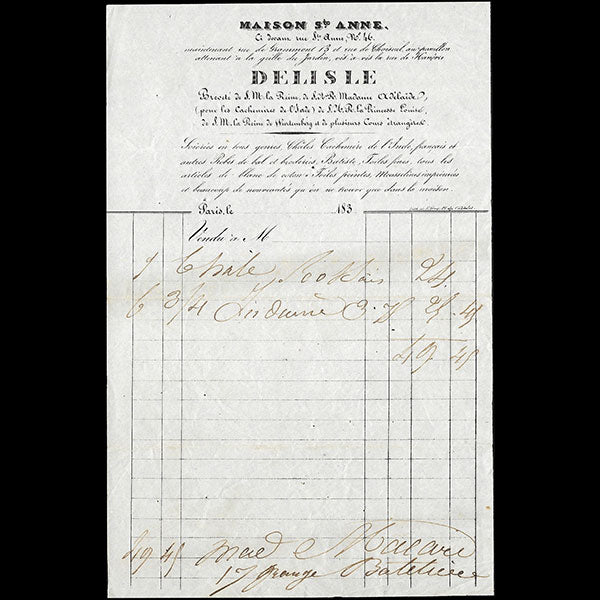 MAISON Ste ANNE.
Ci devant rue Ste Anne, No. 46.
maintenant rue de Grammont 13 et rue de Choiseul, au pavillon
attenant à la grille du Jardin, vis à vis la rue de Hanôvre
DELISLE
Breveté de S. M. la Reine, de S. A. R. Madame Adélaïde,
(pour les Cachemires de l'Inde) de S. A. R. la Princesse Louise,
de S. M. la Reine de Wurtemberg et de plusieurs Cours étrangères.
Soieries en tous genres, Châles Cachemire de l'Inde, français et
autres Robes de bal et broderies, Batiste, Toiles fines, tous les
articles de blanc de coton, Toiles peintes, Mousselines imprimées
et beaucoup de nouveautés qu'on ne trouve que dans la maison.
Paris, le 183
Vendu à M
1 Chale 24
6 3/4 3. 25 45
49 45
49 45 Mad
17 grange Batelière